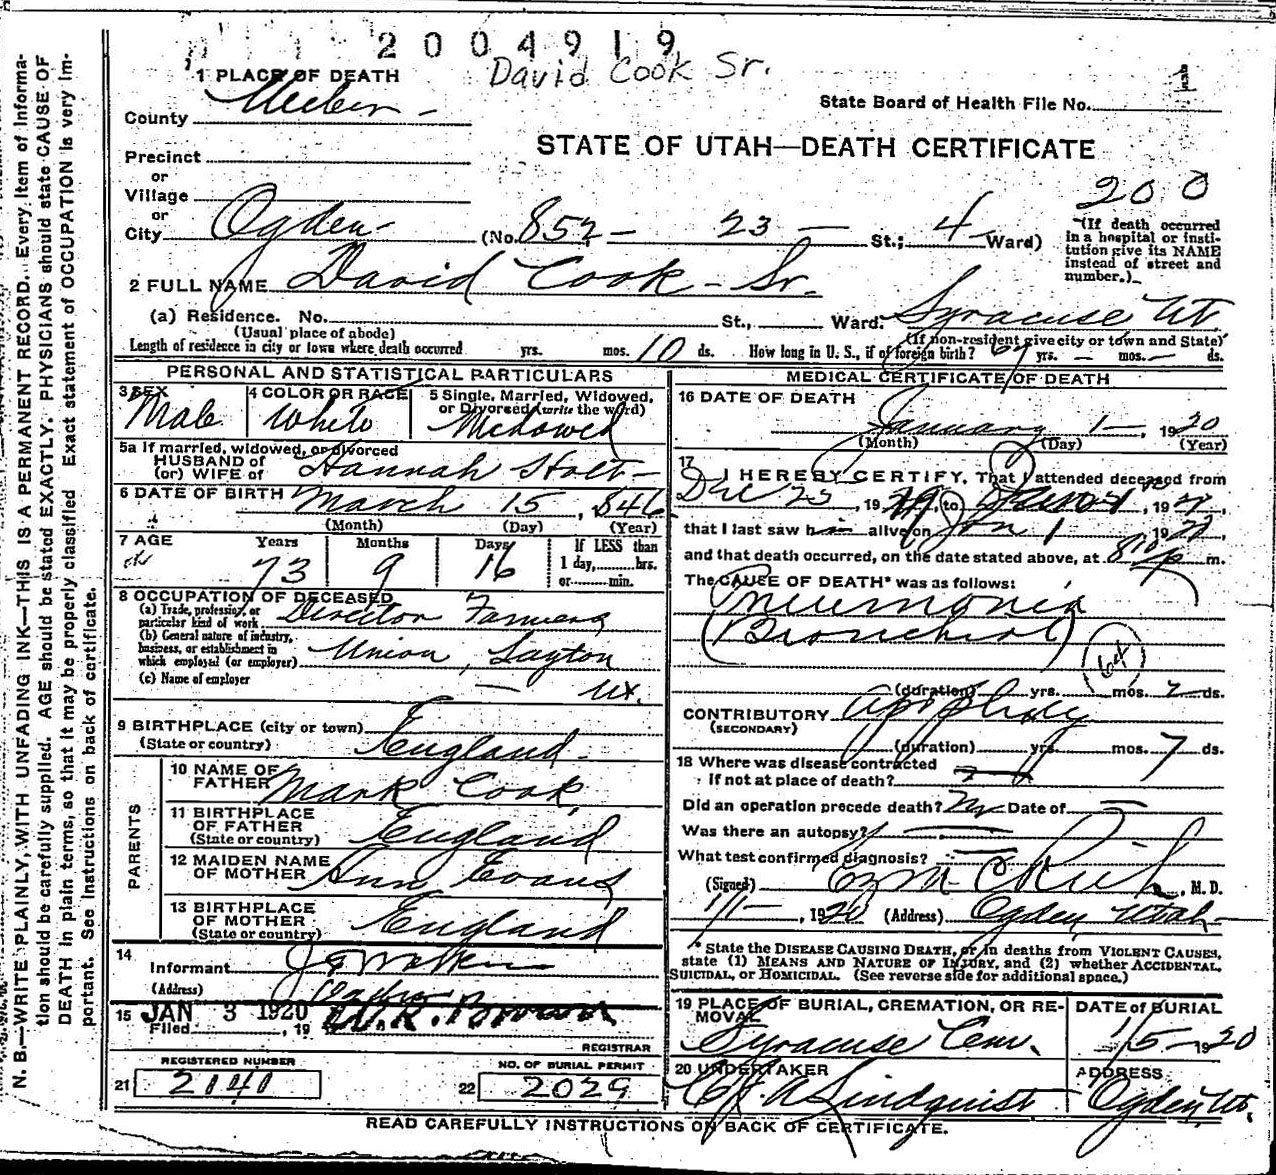 2004919
David Cook Sr.
1
1 PLACE OF DEATH
County Weber
State Board of Health File No.
STATE OF UTAH—DEATH CERTIFICATE
Precinct
or
Village
or
City Ogden (No. 852 - 23 - St.; 4 Ward)
200
(If death occurred in a hospital or institution give its NAME instead of street and number.)
2 FULL NAME David Cook - Sr.
(a) Residence. No. St., Ward. Syracuse Ut.
(Usual place of abode) (If non-resident give city or town and State)
Length of residence in city or town where death occurred yrs. mos. 10 ds. How long in U. S., if of foreign birth? yrs. — mos. — ds.
PERSONAL AND STATISTICAL PARTICULARS
3 SEX Male
4 COLOR OR RACE White
5 Single, Married, Widowed, or Divorced (write the word) Widowed
5a If married, widowed, or divorced
HUSBAND of
(or) WIFE of Hannah Holt
6 DATE OF BIRTH March 15, 1846
(Month) (Day) (Year)
7 AGE Years Months Days If LESS than
73 9 16 1 day, hrs.
or min.
8 OCCUPATION OF DECEASED
(a) Trade, profession, or particular kind of work Director Farmers
(b) General nature of industry, business, or establishment in which employed (or employer) Union, Layton
(c) Name of employer — Ut.
9 BIRTHPLACE (city or town)
(State or country) England.
PARENTS
10 NAME OF FATHER Mark Cook
11 BIRTHPLACE OF FATHER (State or country) England
12 MAIDEN NAME OF MOTHER Ann Evans
13 BIRTHPLACE OF MOTHER (State or country) England
14
Informant
(Address)
15 JAN 3 1920
Filed , 19
REGISTRAR
REGISTERED NUMBER
21 2040
NO. OF BURIAL PERMIT
22 2029
MEDICAL CERTIFICATE OF DEATH
16 DATE OF DEATH
January 1 — , 1920
(Month) (Day) (Year)
17 I HEREBY CERTIFY, That I attended deceased from
Dec 25 , 19 , to , 19 ,
that I last saw h alive on Jan 1 19 20,
and that death occurred, on the date stated above, at 8 p m.
The CAUSE OF DEATH* was as follows:
Pneumonia
(Bronchial)
64
(duration) yrs. mos. 7 ds.
CONTRIBUTORY Apoplexy
(SECONDARY)
(duration) yrs mos. 7 ds.
18 Where was disease contracted
if not at place of death?
Did an operation precede death? No Date of —
Was there an autopsy? —
What test confirmed diagnosis? —
(Signed) Rich , M. D.
1/1 — , 1920 (Address) Ogden Utah
* State the DISEASE CAUSING DEATH, or in deaths from VIOLENT CAUSES,
state (1) MEANS AND NATURE OF INJURY, and (2) whether ACCIDENTAL,
SUICIDAL, or HOMICIDAL. (See reverse side for additional space.)
19 PLACE OF BURIAL, CREMATION, OR REMOVAL Syracuse Cem.
DATE of BURIAL 1/5 - 1920
20 UNDERTAKER Lindquist
ADDRESS Ogden, Ut.
READ CAREFULLY INSTRUCTIONS ON BACK OF CERTIFICATE.
N. B.—WRITE PLAINLY, WITH UNFADING INK—THIS IS A PERMANENT RECORD. Every item of Informa-
tion should be carefully supplied. AGE should be stated EXACTLY. PHYSICIANS should state CAUSE OF
DEATH in plain terms, so that it may be properly classified. Exact statement of OCCUPATION is very im-
portant. See instructions on back of certificate.